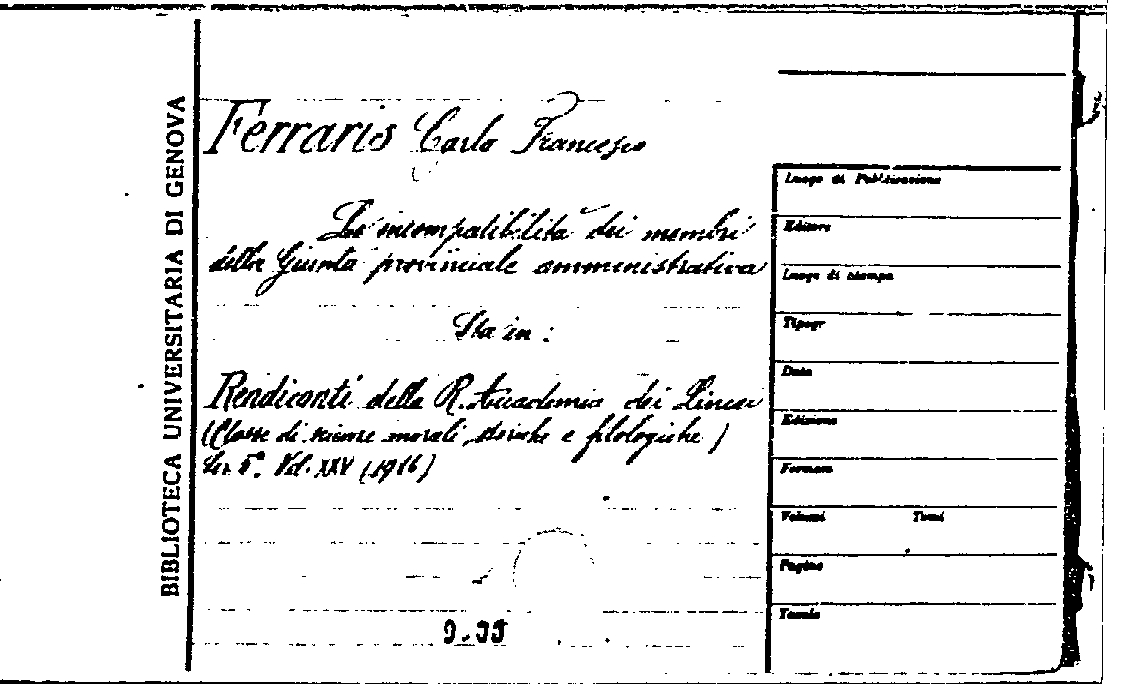 BIBLIOTECA UNIVERSITARIA DI GENOVA
Ferraris Carlo Francesco
Le incompatibilità dei membri
della Giunta provinciale amministrativa
Sta in :
Rendiconti della R. Accademia dei Lincei
(Classe di scienze morali, storiche e filologiche)
Ser. 5ª. Vol. XXV (1916)
Luogo di Pubblicazione
Editore
Luogo di stampa
Tipogr
Data
Edizione
Formato
Volumi Tomi
Pagine
Tavole